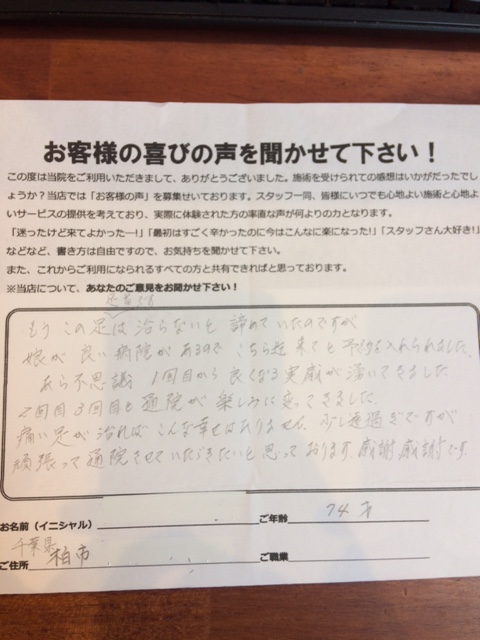 お客様の喜びの声を聞かせて下さい！
この度は当院をご利用いただきまして、ありがとうございました。施術を受けられての感想はいかがだったでし
ょうか？当店では「お客様の声」を募集せいております。スタッフ一同、皆様にいつでも心地よい施術と心地よ
いサービスの提供を考えており、実際に体験された方の率直な声が何よりの力となります。
「迷ったけど来てよかった―！」「最初はすごく辛かったのに今はこんなに楽になった！」「スタッフさん大好き！」
などなど、書き方は自由ですので、お気持ちを聞かせて下さい。
また、これからご利用になられるすべての方と共有できればと思っております。
※当店について、あなたのご意見をお聞かせ下さい！
もうこの足は治らないと諦めていたのですが
娘が良い病院があるのでこちら迄来てと予約を入れられました。
あら不思議 1回目から良くなる実感が湧いてきました
2回目3回目と通院が楽しみに変ってきました
痛い足が治ればこんな幸せはありません。少し遠過ぎですが
頑張って通院させていただきたいと思っております。感謝感謝です。
お名前（イニシャル）
ご年齢 74才
千葉県
ご住所 柏市
ご職業